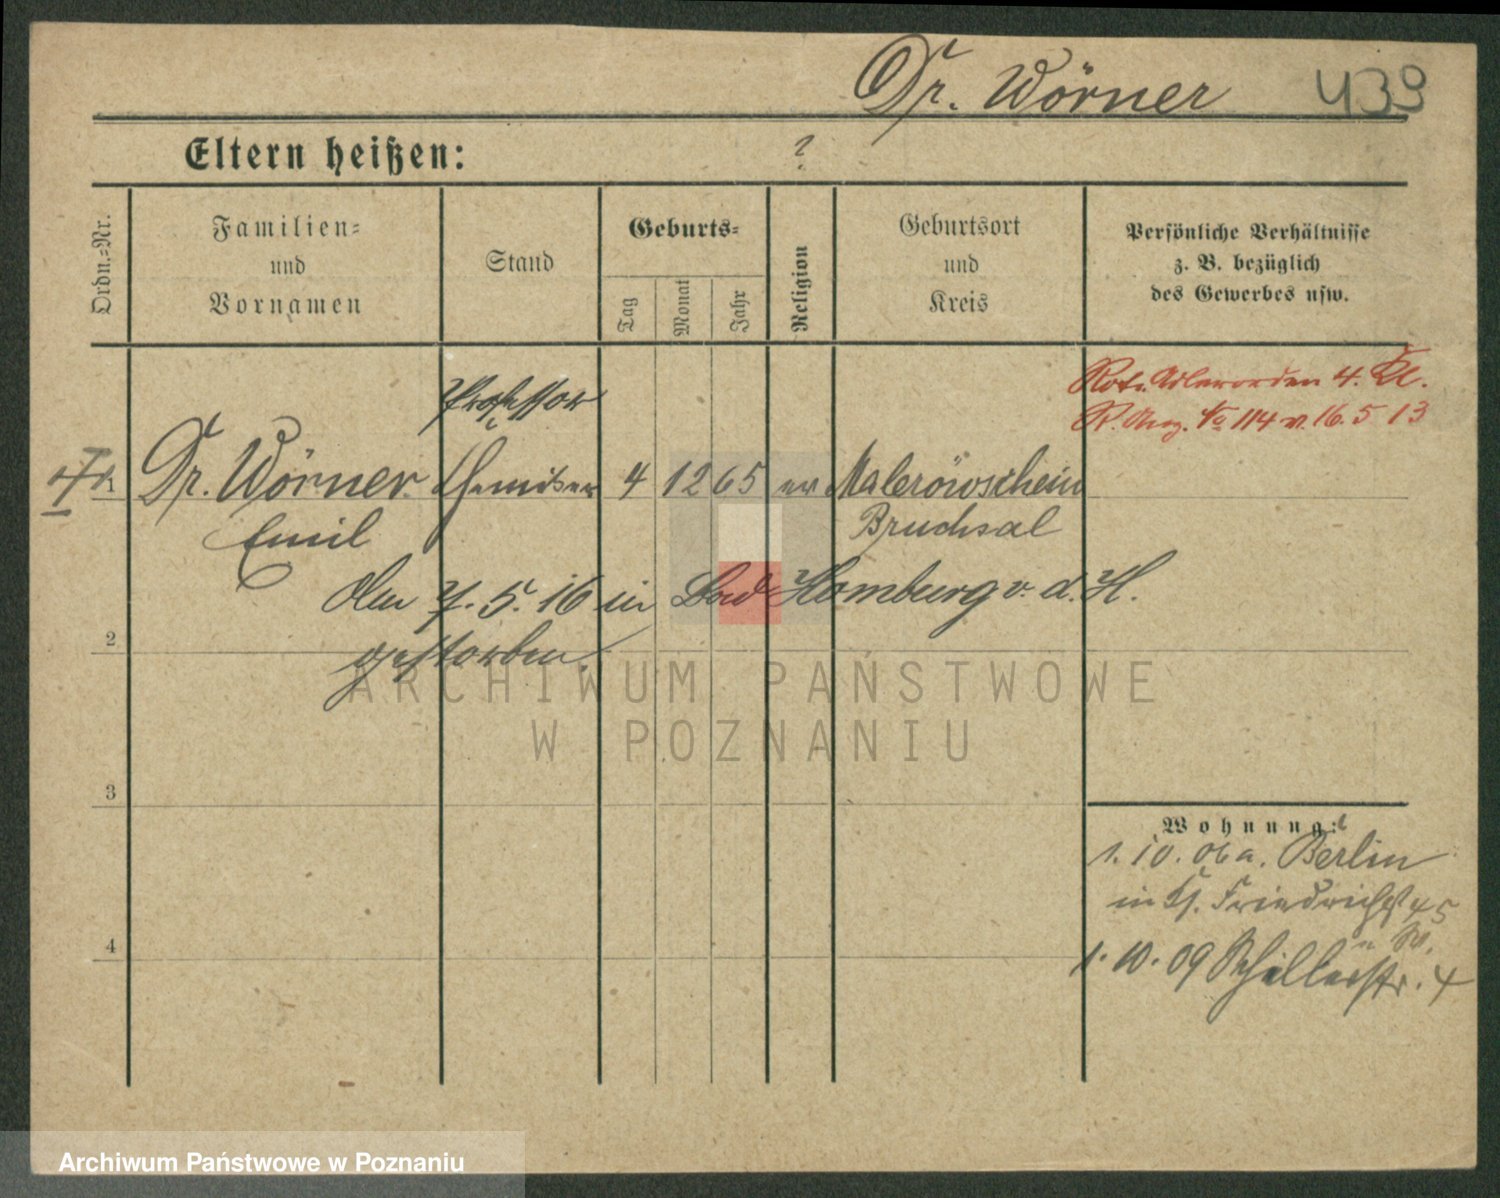 Dr. Wörner 439
Eltern heißen: ?
Ordn.-Nr.
Familien-
und
Vornamen
Stand
Geburts-
Tag
Monat
Jahr
Religion
Geburtsort
und
Kreis
Persönliche Verhältnisse
z. B. bezüglich
des Gewerbes usw.
Rot. Adlerorden 4. Kl.
R. Anz. No 114 v. 16. 5 13
Professor
1 Dr. Wörner Chemiker 4 12 65 ev
Emil Bruchsal
den 7. 5. 16 in Bad Homburg v. d. H.
gestorben.
2
3
4
Wohnung:
1. 10. 06 a. Berlin
in Friedrichst 45
1. 10. 09 Schillerstr. 4
ARCHIWUM PAŃSTWOWE
W POZNANIU
Archiwum Państwowe w Poznaniu